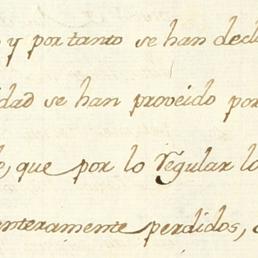 y por tanto se han decla
idad se han proveido por
e, que por lo regular lo
enteramente perdidos,